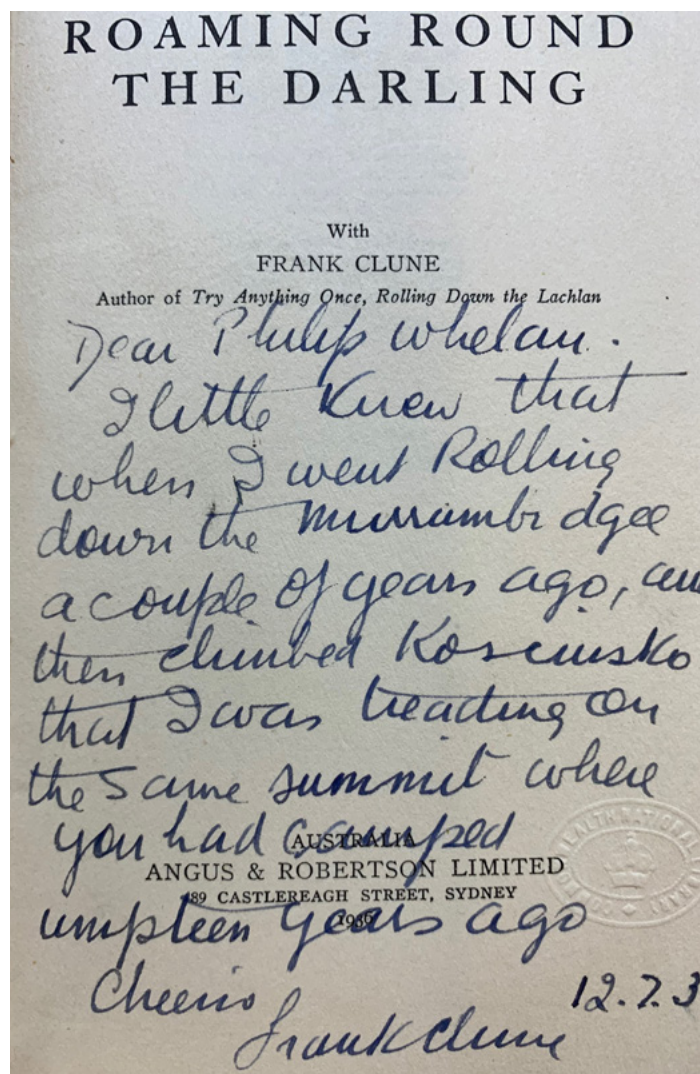 ROAMING ROUND
THE DARLING
With
FRANK CLUNE
Author of Try Anything Once, Rolling Down the Lachlan
Dear Philip Whelan.
I little Knew that
when I went Rolling
down the Murrumbidgee
a couple of years ago, an
then climbed Kosciusko
that I was treading on
the same summit where
you had camped
AUSTRALIA
ANGUS & ROBERTSON LIMITED
89 CASTLEREAGH STREET, SYDNEY
1936
umpteen years ago
Cheerio
12.7.3
Frank Clune